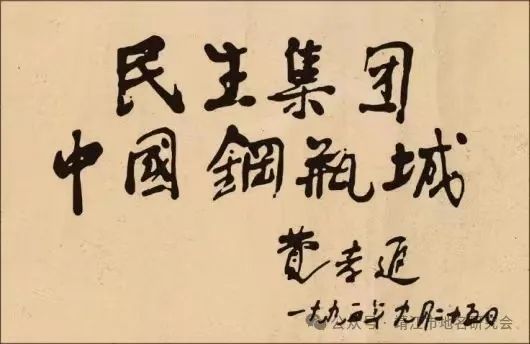 民生集团
中國鋼瓶城
費孝通
一九九五年九月二十五日
公众号·靖江市地名研究会